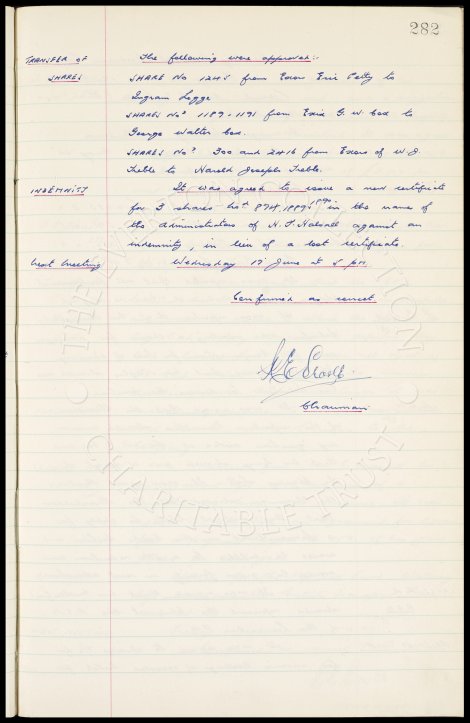 282
TRANSFER OF SHARES
The following were approved:-
SHARE No 1245 from Exor Eric Petty to
Ingram Legge
SHARES Nos 1189-1191 from Exix G. W. Cox to
George Walter Cox.
SHARES Nos. 300 and 2416 from Exors of W. J.
Treble to Harold Joseph Treble.
INDEMNITY
It was agreed to issue a new certificate
for 3 shares Nos 874, 889, 890 in the name of
the administrators of H. J. against an
indemnity, in lieu of a lost certificate.
Next Meeting
Wednesday 17 June at 5 pm.
Confirmed as correct
Chairman
THE EVERTON COLLECTION
CHARITABLE TRUST